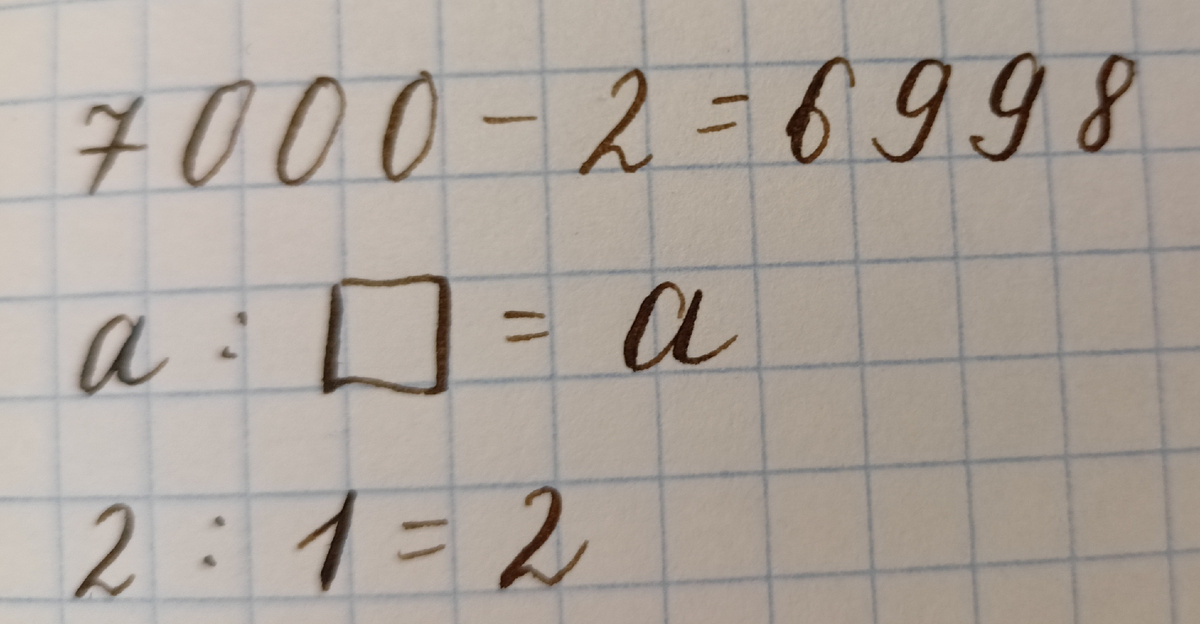 7000 - 2 = 6998
a : □ = a
2 : 1 = 2